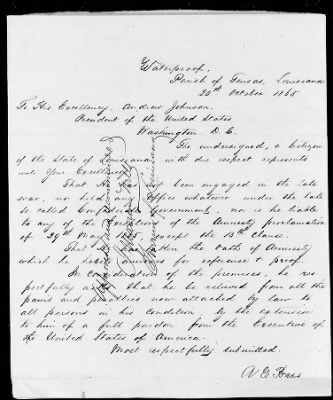 Waterproof,
Parish of Tensas, Louisiana
20th October 1865
To His Excellency, Andrew Johnson,
President of the United States
Washington D. C.
The undersigned, a Citizen
of the State of Louisiana with due respect represents
unto Your Excellency
That he has not been engaged in the late
war, nor held any Office whatever under the late
so called Confederate Government, nor is he liable
to any of the Exceptions of the Amnesty proclamation
of 29th May except the 13th Clause.
That he has taken the Oath of Amnesty
which he annexes for reference & proof.
In consideration of the premises, he res-
pectfully asks that he be relieved from all the
pains and penalties now attached by law to
all persons in his condition by the extension
to him of a full pardon from the Executive of
the United States of America.
Most respectfully submitted.